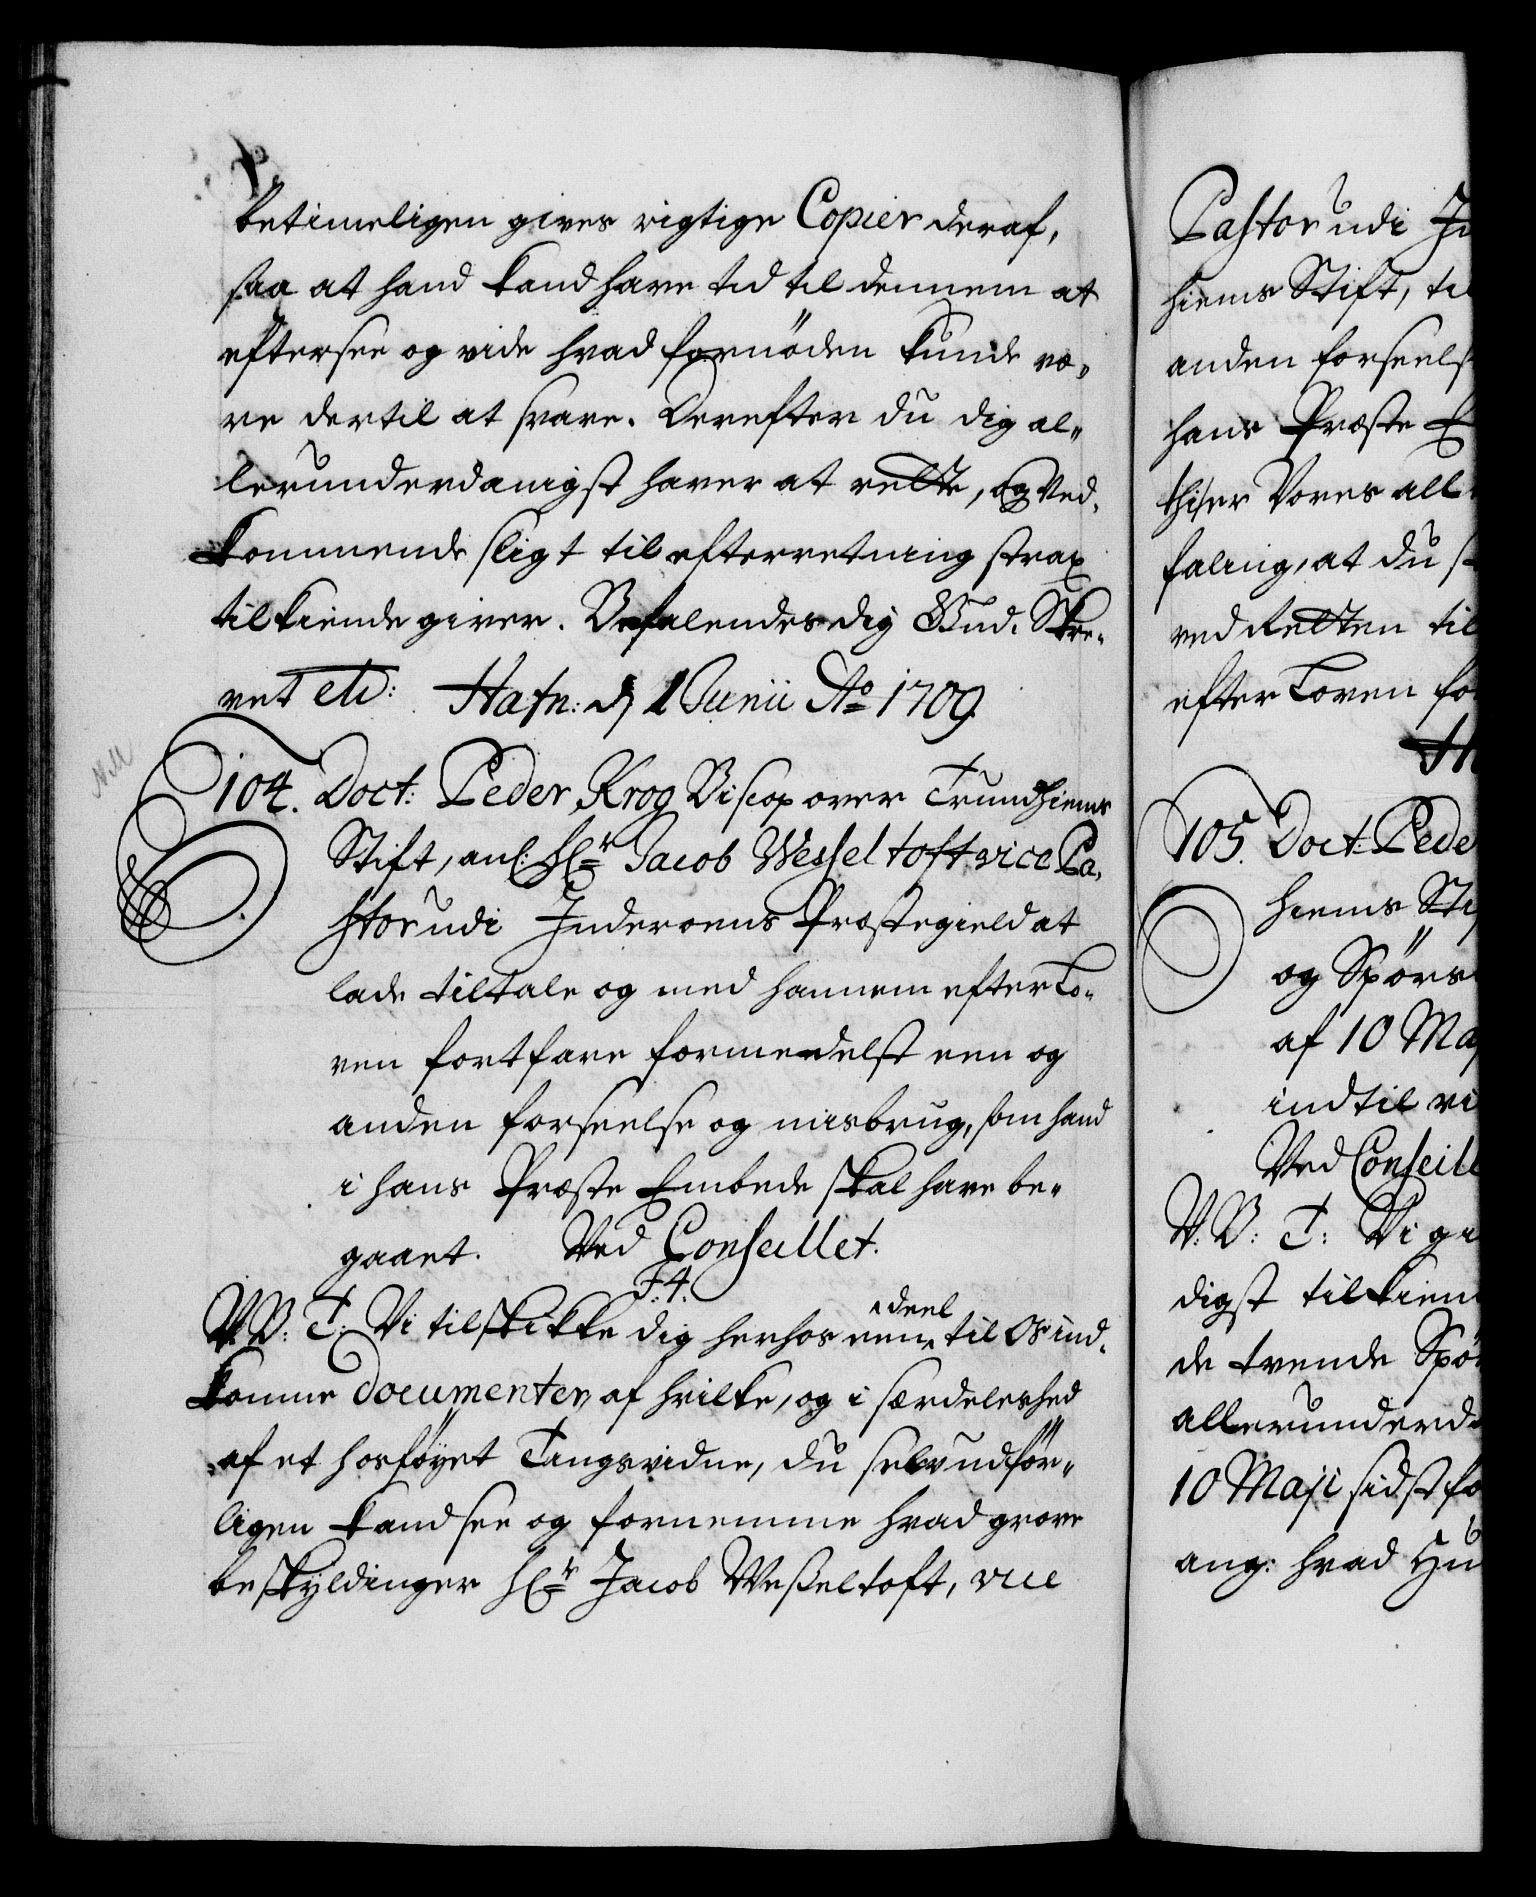 betimeligen gives rigtige Copier deraf,
saa at hand kand have tid til dennem at
eftersee og vide hvad fornöden kunde væ„
re dertil at svare. Derefter du dig al„
lerunderdanigst haver at rette, og Ved„
kommende sligt til efterretning strax
tilkiende giver. Befalendes dig Gud. Skre„
vet etc: Hafn: d 1 Junii Ao 1709
N.M
104. Doct: Peder Krog Biscop over Trundhiems
Stift, anl: Hr Jacob Wessel toft vice Pa„
stor udi Inderoens Præstegield at
lade tiltale og med hannem efter Lo„
ven fortfare formedelst een og
anden forseelse og misbrug, som hand
i hans Præste Embede skal have be„
gaaet. Ved Conseillet.
F: 4:
V. B: T: Vi tilskikke dig herhos een deel til Os ind„
komne documenter, af hvilke, og i særdeleshed
af et hosföyet Tingsvidne, du selv udför„
ligen kand see og fornemme hvad grove
beskyldinger Hr Jacob Weßeltoft, vice
Pastor udi In
hiems Stift, til
anden forseels
hans Præste E
thi er Vores all
faling, at du s
ved Retten til
efter Loven fo
H
105. Doct: Pede
hiems Sti
og Spörs
af 10 Maj
indtil vi
Ved Conseill
V. B: T: Vi gi
digst tilkien
de trende Spö
allerunderd
10 Maji sidst fo
ang: hvad Hu